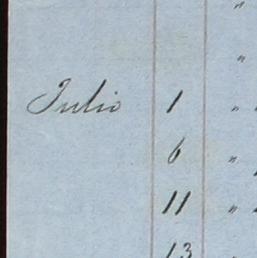 "
"
Julio 1 "
6 "
11 "
13 "